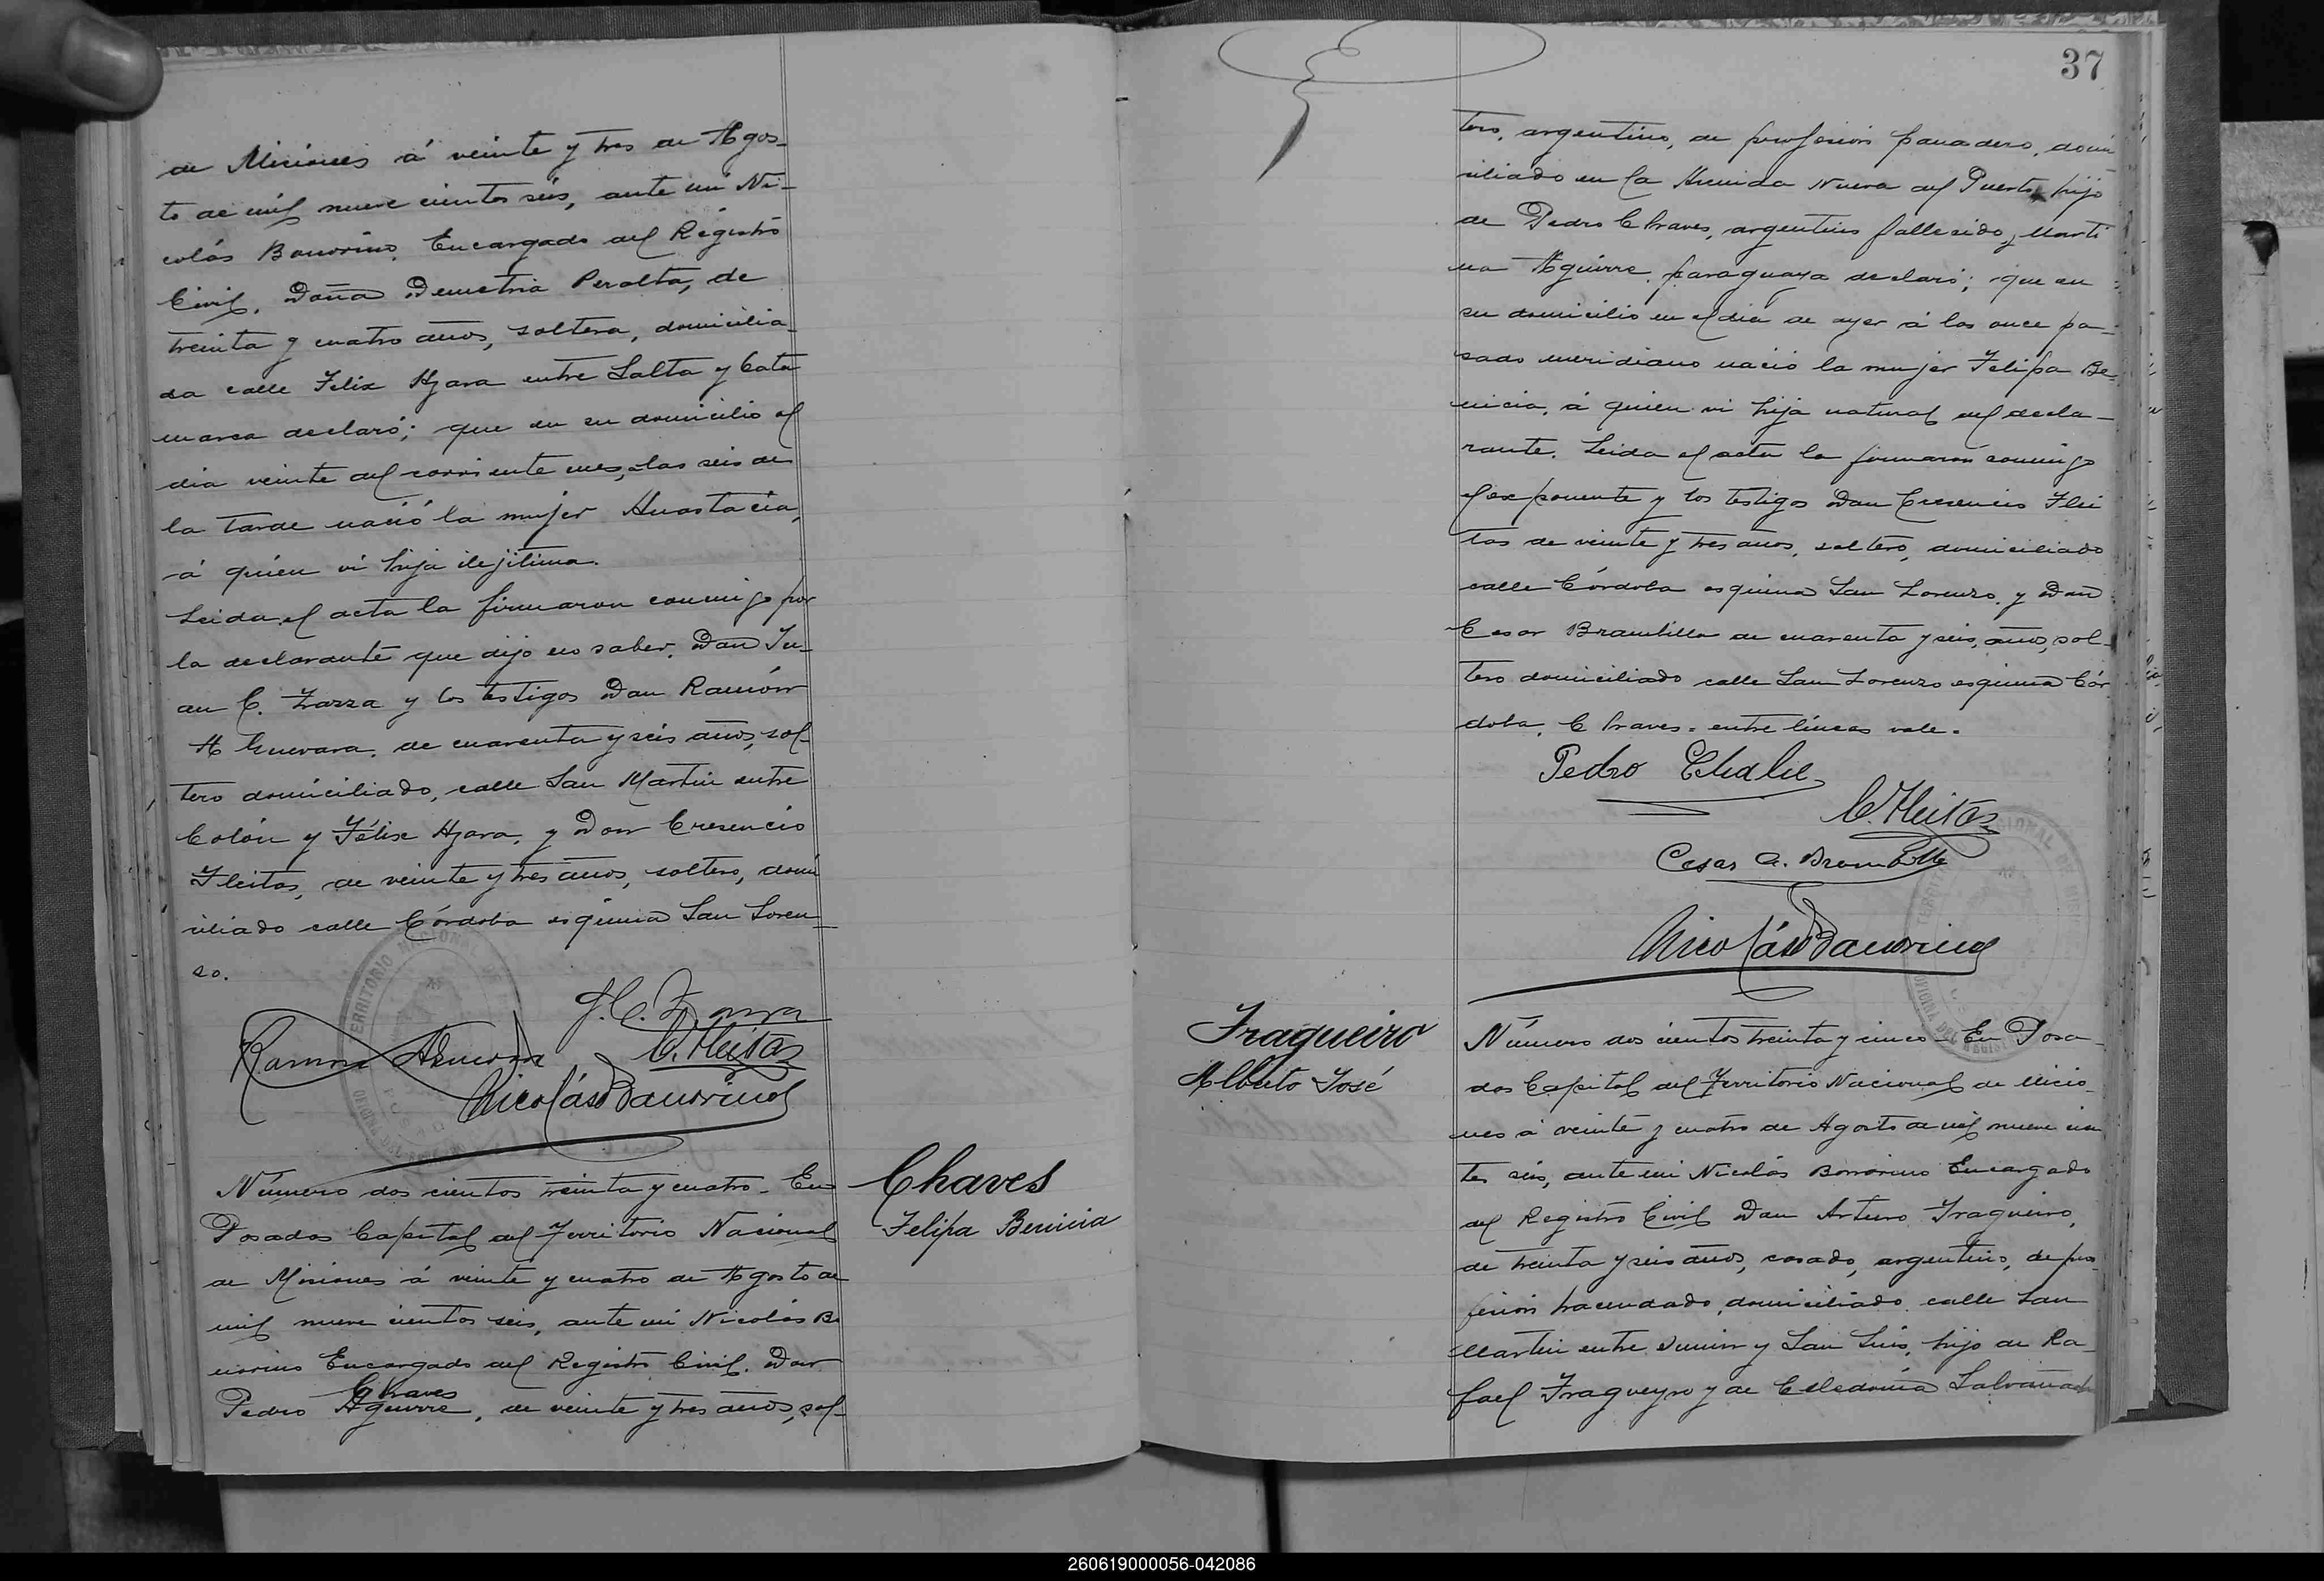 de Misiones á veinte y tres de Agos-
to de mil nueve cientos seis, ante mi Ni-
colás Bonorino, Encargado del Registro
Civil, Doña Demetria Peralta, de
treinta y cuatro años, soltera, domicilia-
da calle Felix Azara entre Salta y Cata
marca declaró; que en su domicilio el
dia veinte del corriente mes, a las seis de
la tarde nació la mujer Anastacia,
á quien vi hija ilejitima.
Leida el acta la firmaron conmigo por
la declarante que dijo no saber, Don Ju-
an C. Zarza y los testigos Don Ramón
A Guevara, de cuarenta y seis años, sol-
tero domiciliado, calle San Martin entre
Colón y Félix Azara, y Don Cresencio
Fleitas, de veinte y tres años, soltero, domi
ciliado calle Córdoba esquina San Loren-
so.
J. C. Zarza
Ramon A Guevara C. Fleitas
Nicolás Bonorino
Número dos cientos treinta y cuatro - En
Posadas Capital del Territorio Nacional
de Misiones á veinte y cuatro de Agosto de
mil nueve cientos seis, ante mi Nicolás Bo
norino Encargado del Registro Civil. Don
Chaves
Pedro Aguirre, de veinte y tres años, sol-
Chaves
Felipa Benicia
37
tero, argentino, de profesion panadero, domi
ciliado en la Avenida Nueva del Puerto, hijo
de Pedro Chaves, argentino fallecido y Marti
na Aguirre, paraguaya declaró; que en
su domicilio en el dia de ayer á las once pa-
sado meridiano nació la mujer Felipa Be-
nicia, á quien vi hija natural del decla-
rante. Leida el acta la firmaron conmigo
el exponente y los testigos Don Cresencio Flei
tas de veinte y tres años, soltero, domiciliado
calle Córdoba esquina San Lorenzo, y Don
Cesar Brambilla de cuarenta y seis, años, sol-
tero domiciliado calle San Lorenzo esquina Cór
doba. Chaves = entre líneas vale.
Pedro
C. Fleitas
Cesar A. Brambilla
Nicolás Bonorino
Fragueiro
Alberto José
Número dos cientos treinta y cinco - En Posa-
das Capital del Territorio Nacional de Micio-
nes á veinte y cuatro de Agosto de mil nueve cien
tos seis, ante mi Nicolás Bonorino Encargado
del Registro Civil Don Arturo Fragueiro,
de treinta y seis años, casado, argentino, de pro-
fesion hacendado, domiciliado calle San
Martin entre Junin y San Luis, hijo de Ra-
fael Fragueyro y de Celedonia
260619000056-042086